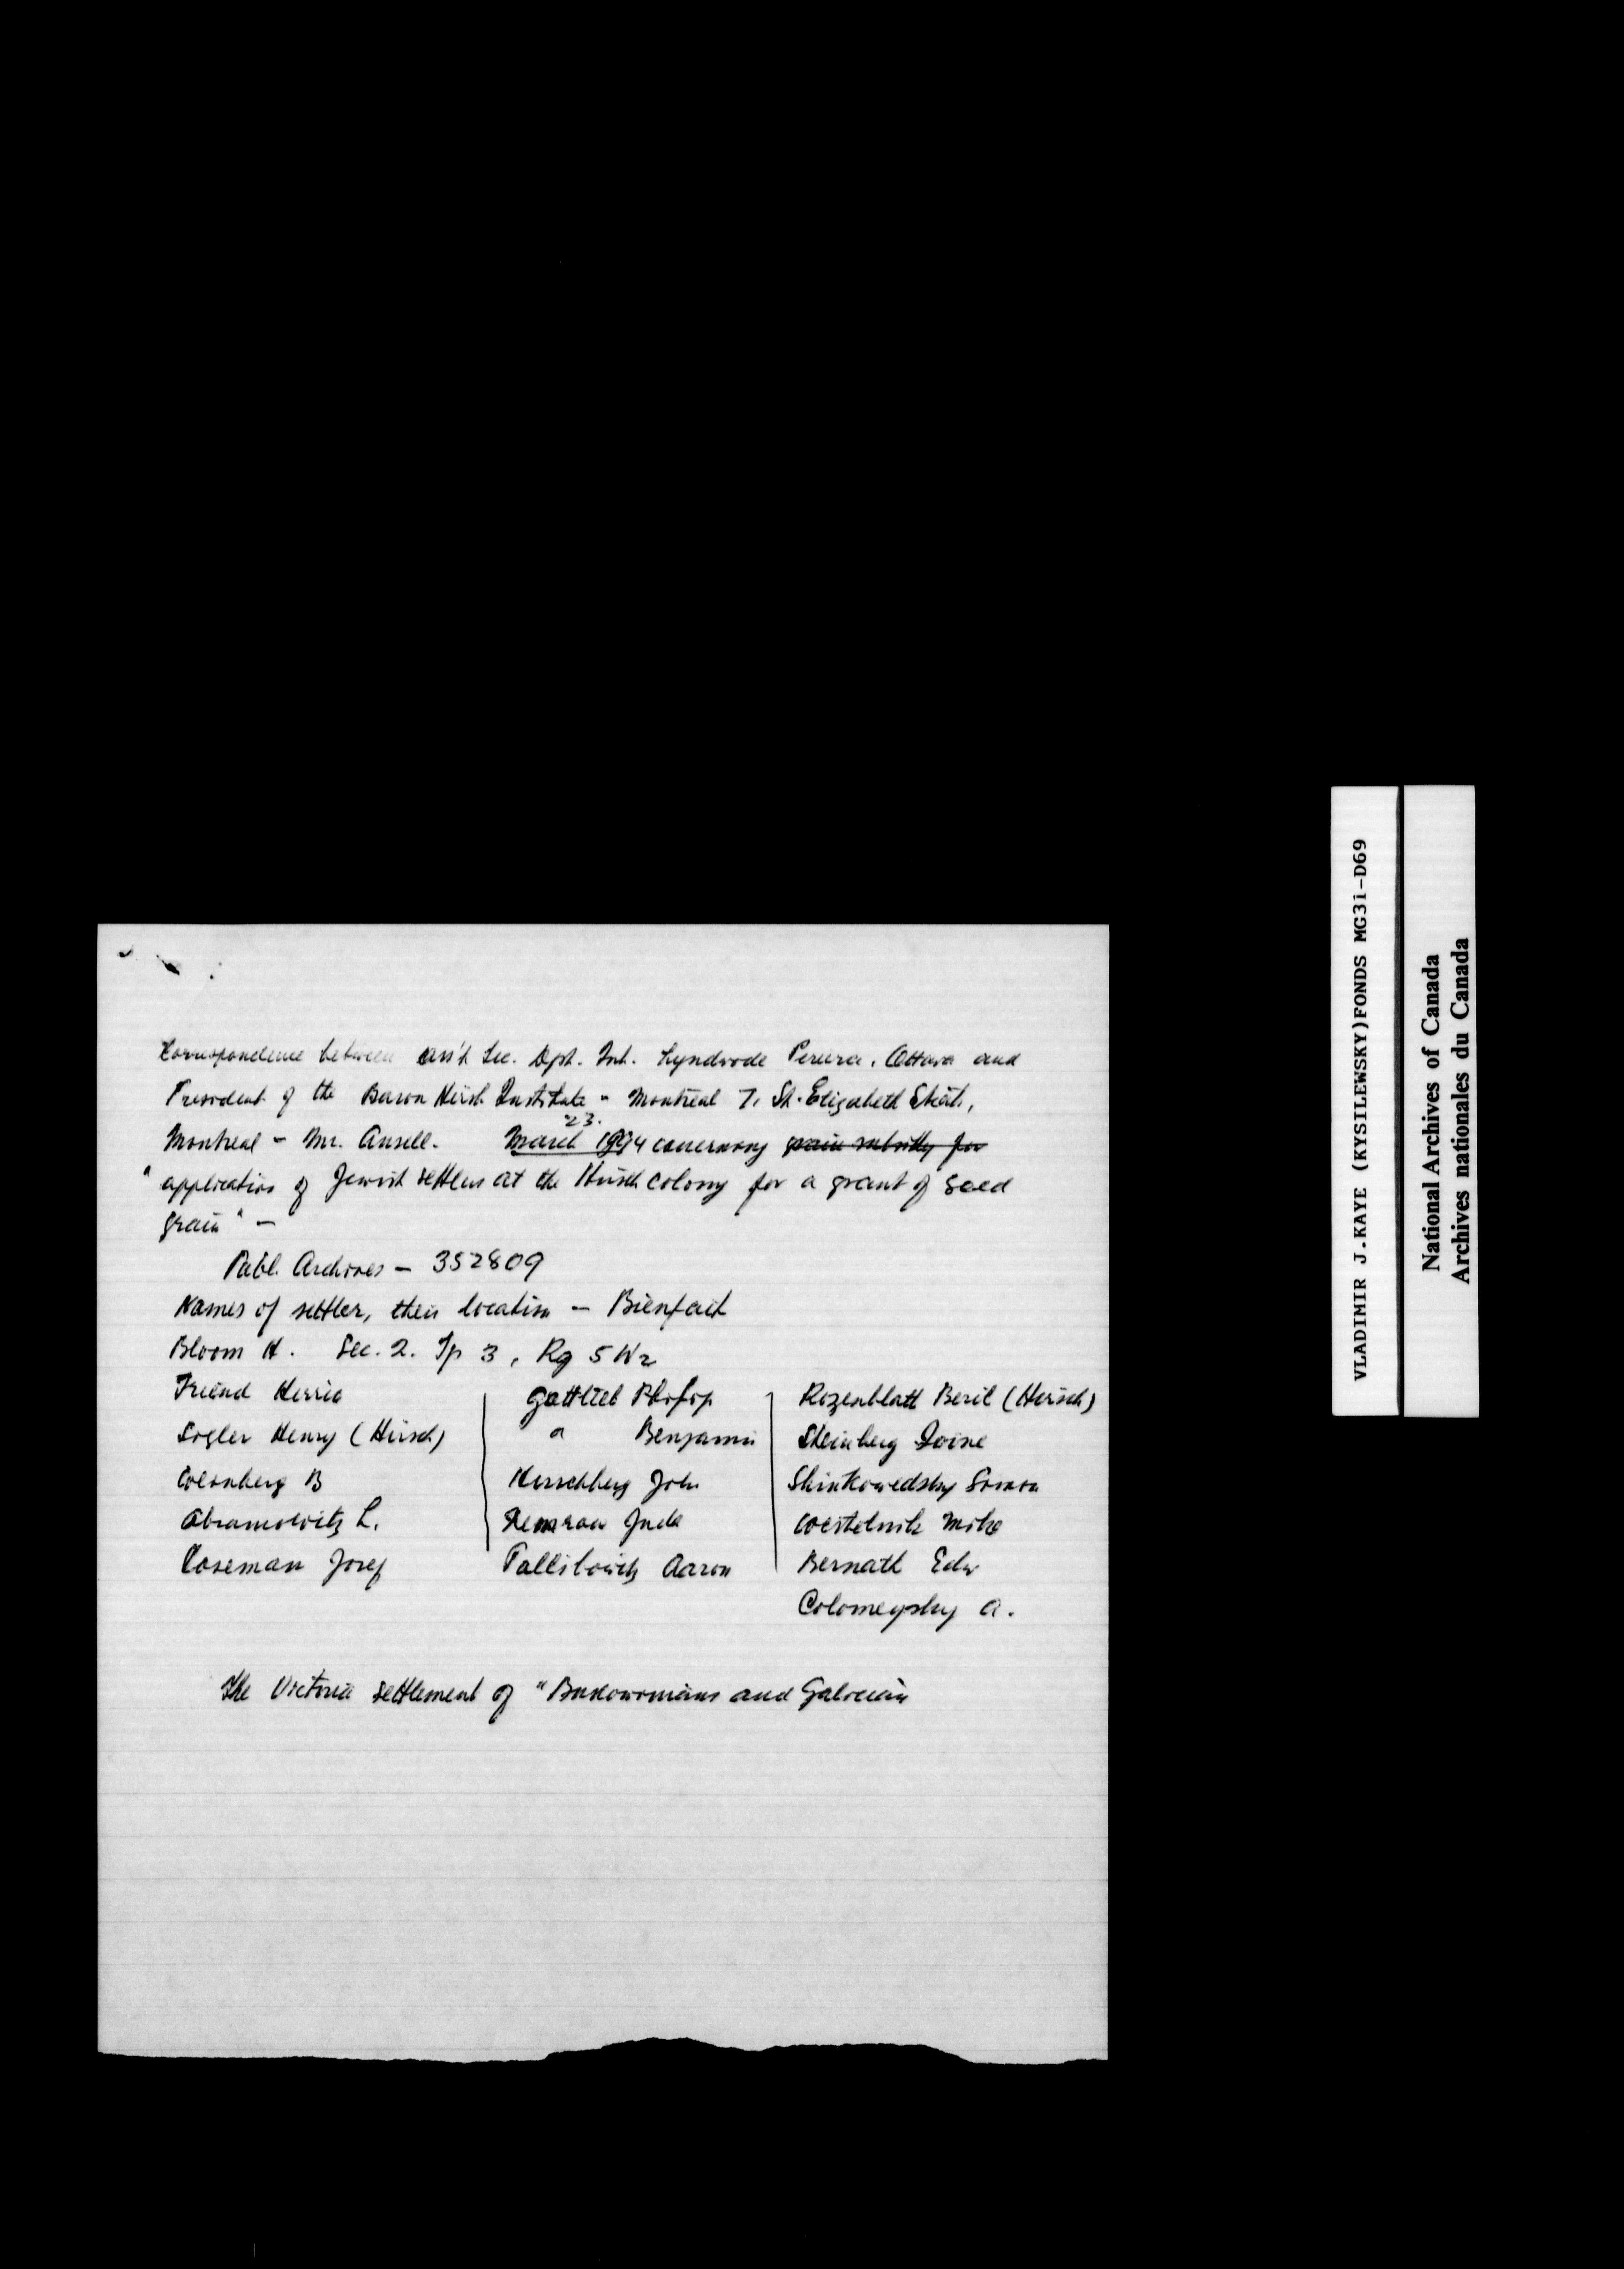 Correspondence between Ass't Sec. Dpt. Int. Lyndwode Pereira, Ottawa and
President of the Baron Hirsh Institute - Montreal 7, St. Elizabeth Street,
23.
Montreal - Mr. Ansell. March 1994 concerning grain subsidy for
" application of Jewish settlers at the Hirsch colony for a grant of seed
grain" -
Publ. Archives - 352809
Names of settler, their location - Bienfait
Bloom H. Sec. 2. Tp 3, Rg 5 W2
Friend Gottlieb Rozenblatt Beril (Hirsch)
Henry (Hirsch) " Benjamin Steinberg
B Herschberg John
Abramovitz L. Juda Mike
Roseman Josef Aaron Bernath Edw
Colomeysky A.
The Victoria settlement of "Bukowinians and Galician
VLADIMIR J.KAYE (KYSILEWSKY)FONDS MG31-D69
National Archives of Canada
Archives nationales du Canada